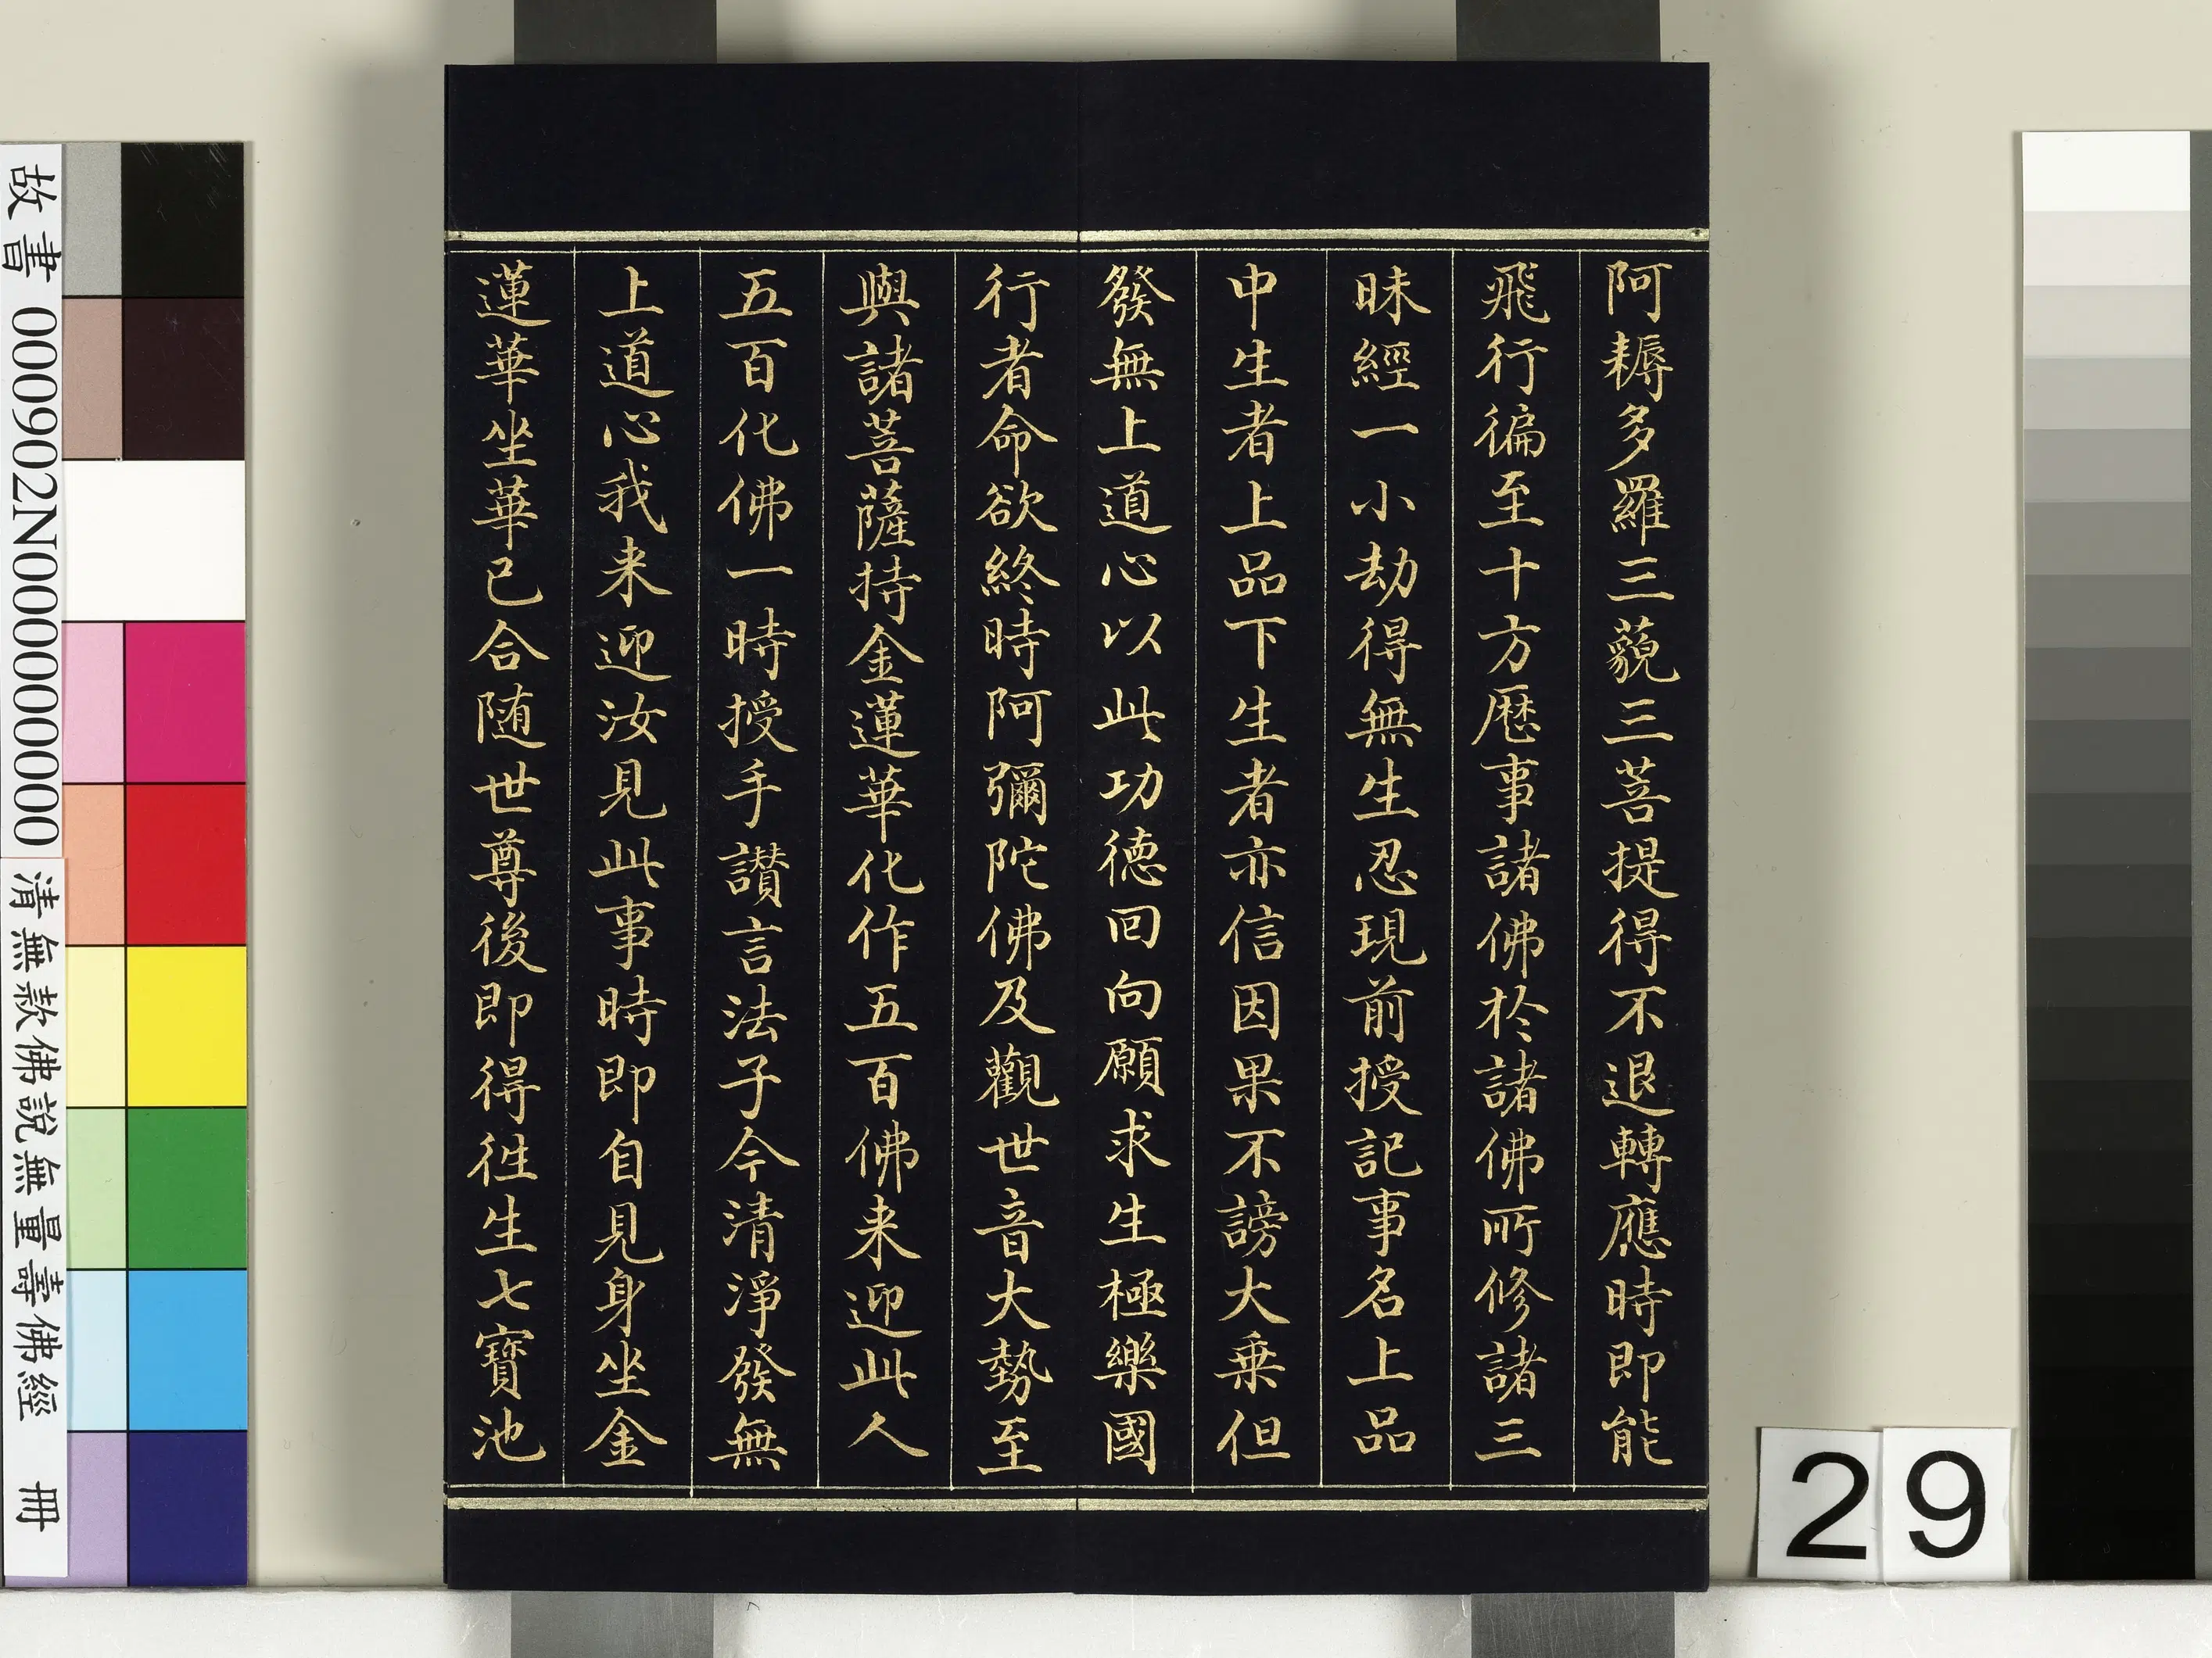 阿耨多羅三藐三菩提得不退轉應時即能
飛行徧至十方歷事諸佛於諸佛所修諸三
昧經一小劫得無生忍現前授記事名上品
中生者上品下生者亦信因果不謗大乗但
發無上道心以此功德回向願求生極樂國
行者命欲終時阿彌陀佛及觀世音大勢至
與諸菩薩持金蓮華化作五百佛来迎此人
五百化佛一時授手讚言法子今清淨發無
上道心我来迎汝見此事時即自見身坐金
蓮華坐華已合随世尊後即得徃生七寶池
故書 000902N000000000
清無款佛說無量壽佛經 冊
29